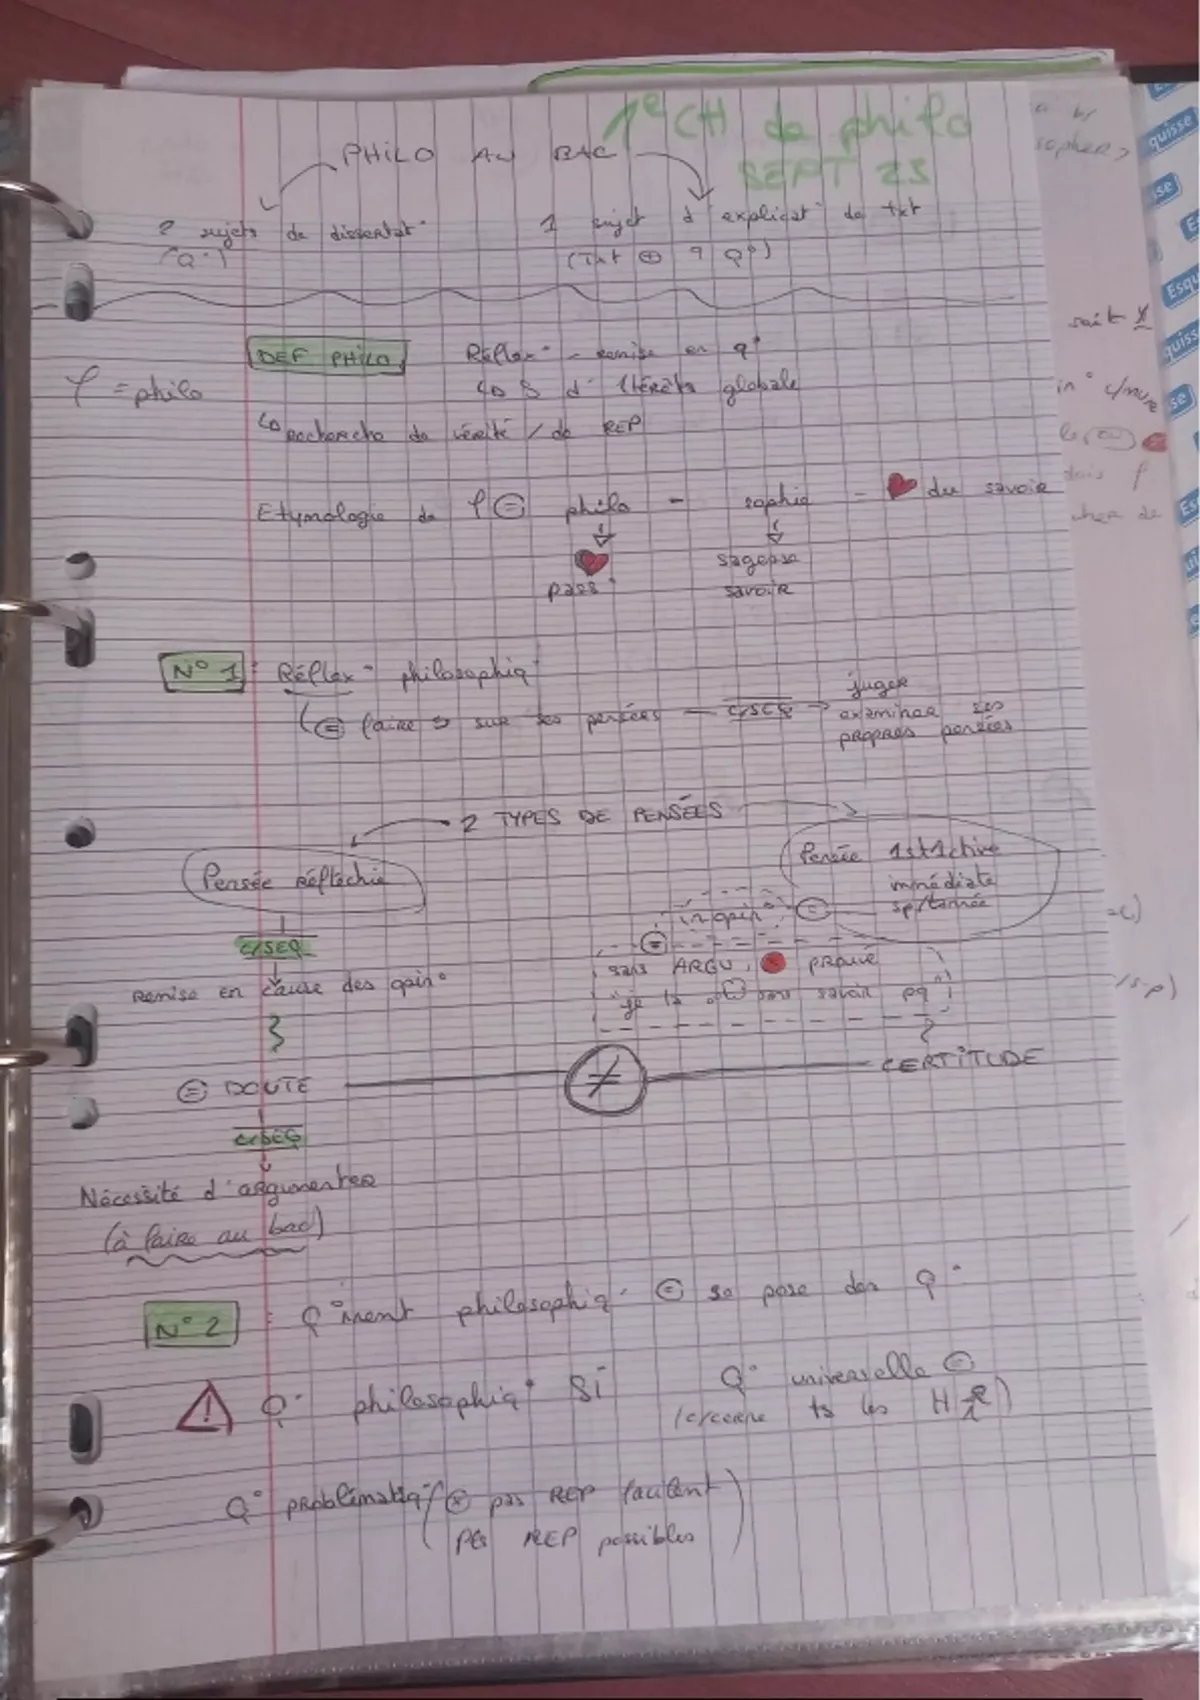 1e CH de philo
SEPT 23
PHILO AU BAC
2 sujets de dissertat°
(Q°)
1 sujet d'explicat° de txt
(Txt ⊕ 9 Q°)
DEF PHILO
Réflex° - remise en q°
φ = philo
d' globale
↳ recherche de vérité / de REP
Etymologie de φ = philo - sophie = ❤ du savoir
❤
pass°
sagesse
savoir
N° 1 : Réflex° philosophiq°
= faire sur ses pensées — C/SEQ → juger
examiner ses
propres pensées
2 TYPES DE PENSÉES
Pensée réfléchie
Pensée 1st1ctive
immédiate
sp/tannée
C/SEQ
opin° =
remise en cause des opin°
= sans ARGU, prouvé
"je sans savoir pq"
= DOUTE ≠ CERTITUDE
C/SEQ
Nécessité d'argumenter
(à faire au bac)
N° 2 : Q°ment philosophiq° = se pose des Q°
⚠ Q° philosophiq° Si
Q° universelle =
(c/cerne ts les H
Q° problématiq° (= pas REP
REP possibles)
quisse
Esqu
quiss
se
sait